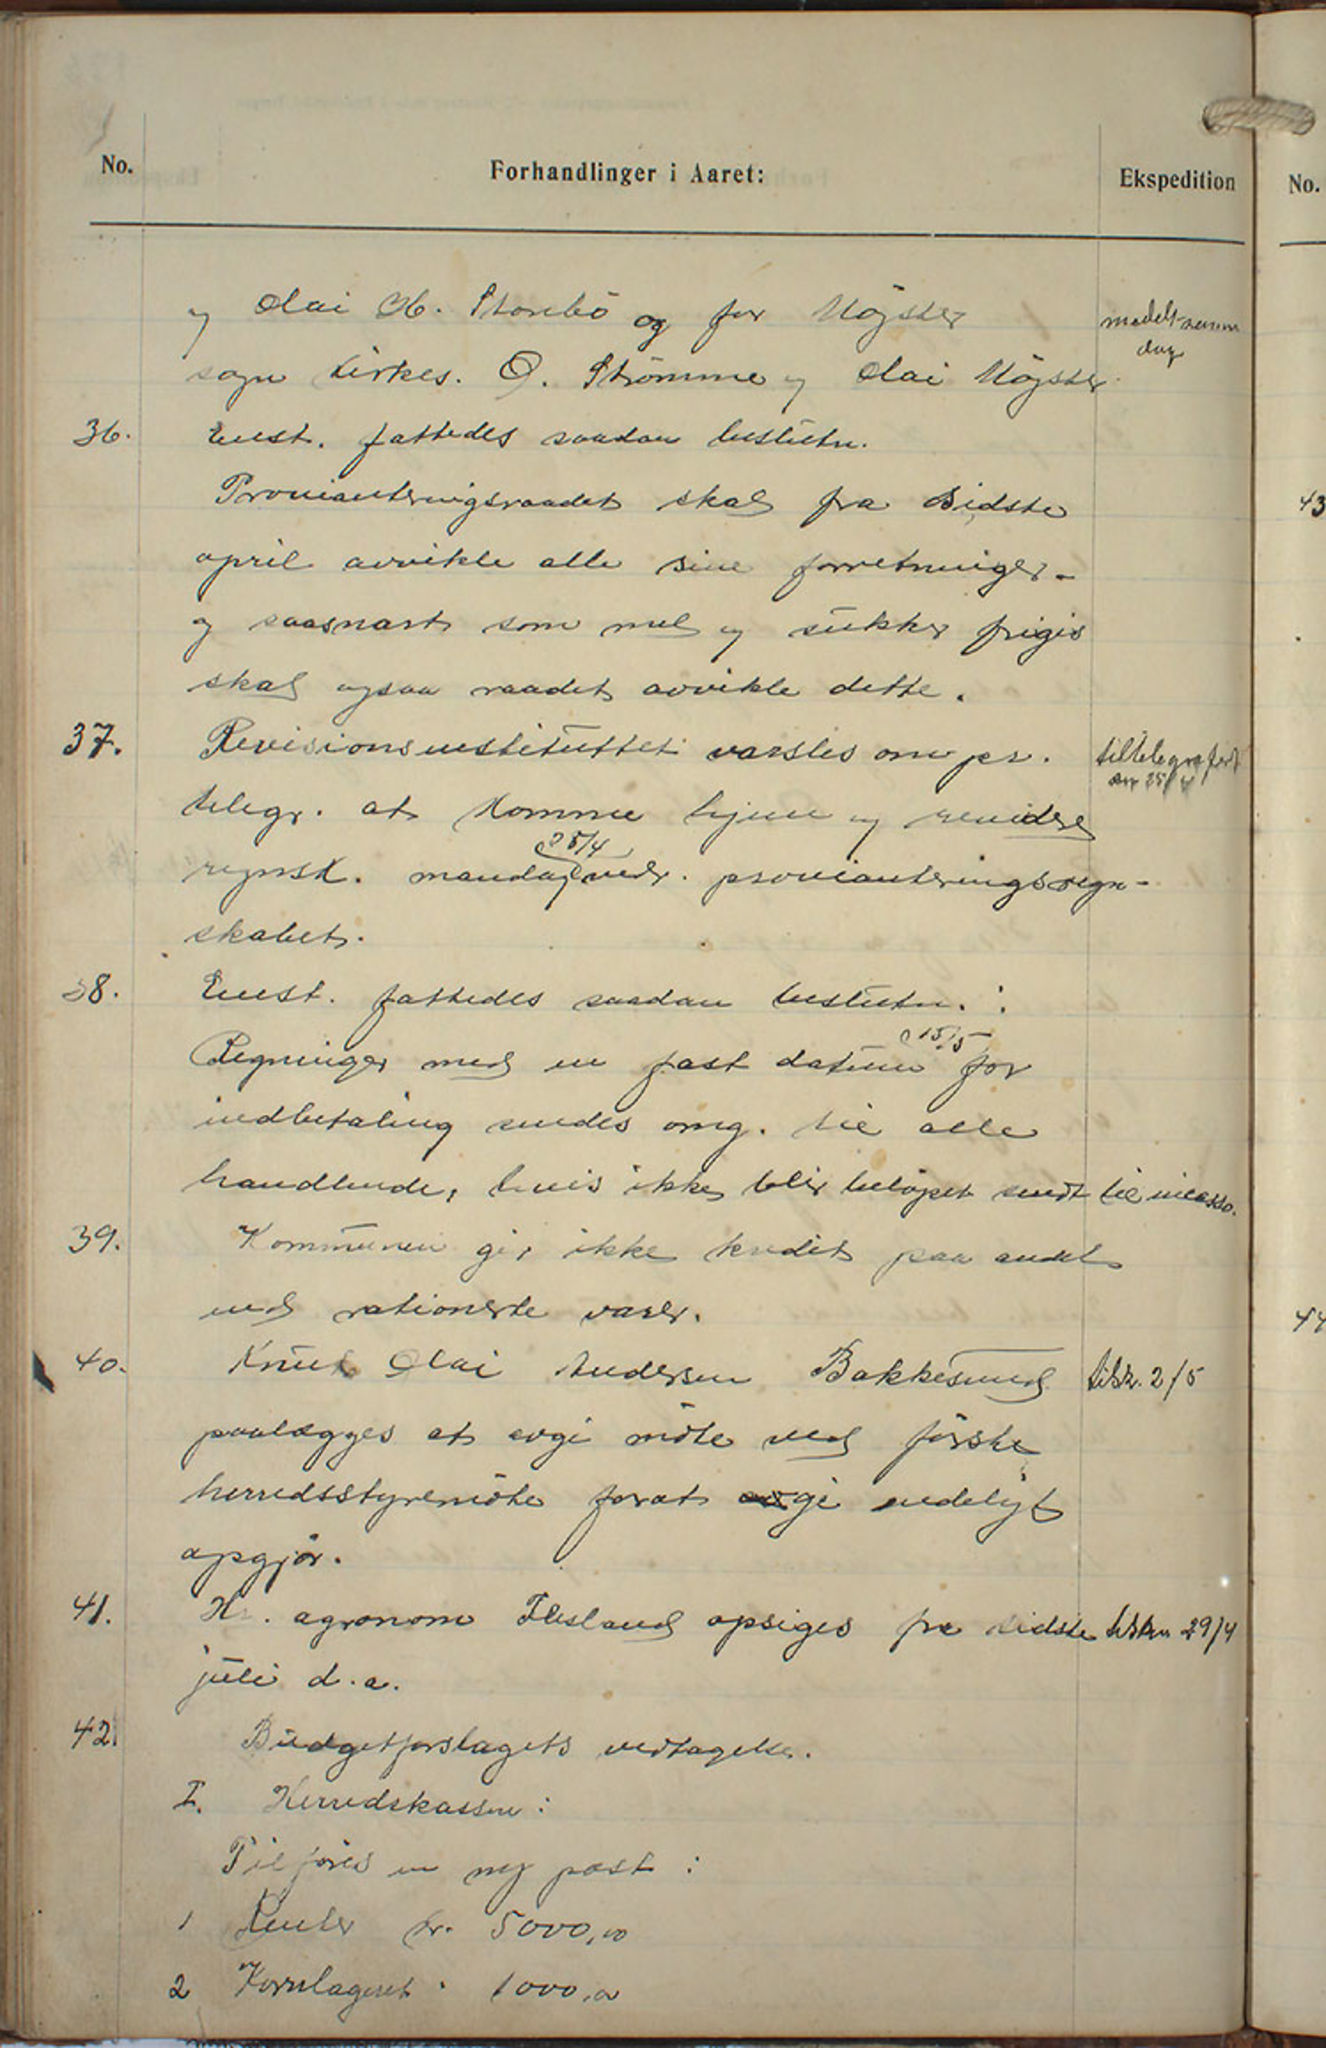 No.
Forhandlinger i Aaret:
Ekspedition
No.
og Olai H. Storebö og for Møgster
medelt samme
dag
sogn Kirkes. O. Strömme og Olai Møgster
36. Enst. fattedes saadan beslutn.
Provianteringsraadet skal fra sidste
april avvikle alle sine forretninger –
og saasnart som mel og sukker frigis
skal ogsaa raadet avvikle dette.
37. Revisionsinstituttet varsles om pr.
tiltelegrafert
25/4
telegr. at komme hjem og revidere
25/4
regnsk. mandag vedr. provianteringsregn-
skabet.
38. Enst. fattedes saadan beslutn. :
15/5
Regninger med en fast datum for
indbetaling sendes omg. til alle
handlende, hvis ikke blir beløpet sendt til incasso.
39. Kommunen gir ikke kredit paa andet
end rationerte varer.
40. Knut Olai Andersen Bakkesund
tilskr. 2/5
paalægges at avgi møte ved første
herredsstyremöte forat avgi endeligt
opgjör.
41. Hr. agronom Flesland opsiges fra sidste
tilskr. 29/4
juli d.a.
42. Budgetforslagets vedtagelse.
I. Herredskassen :
Tilföres en ny post :
1 Renter kr. 5000,00
2 Kornlageret " 1000,00
43
44